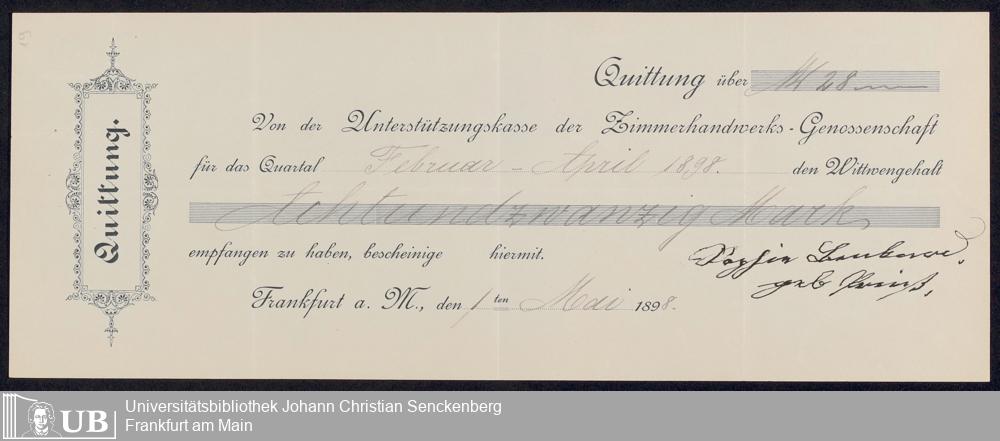 19
Quittung.
Quittung über M 28
Von der Unterstützungskasse der Zimmerhandwerks-Genossenschaft
für das Quartal Februar - April 1898. den Wittwengehalt
Achtundzwanzig Mark
empfangen zu haben, bescheinige hiermit.
Sophie
geb
Frankfurt a. M., den 1 ten Mai 1898.
UB
Universitätsbibliothek Johann Christian Senckenberg
Frankfurt am Main